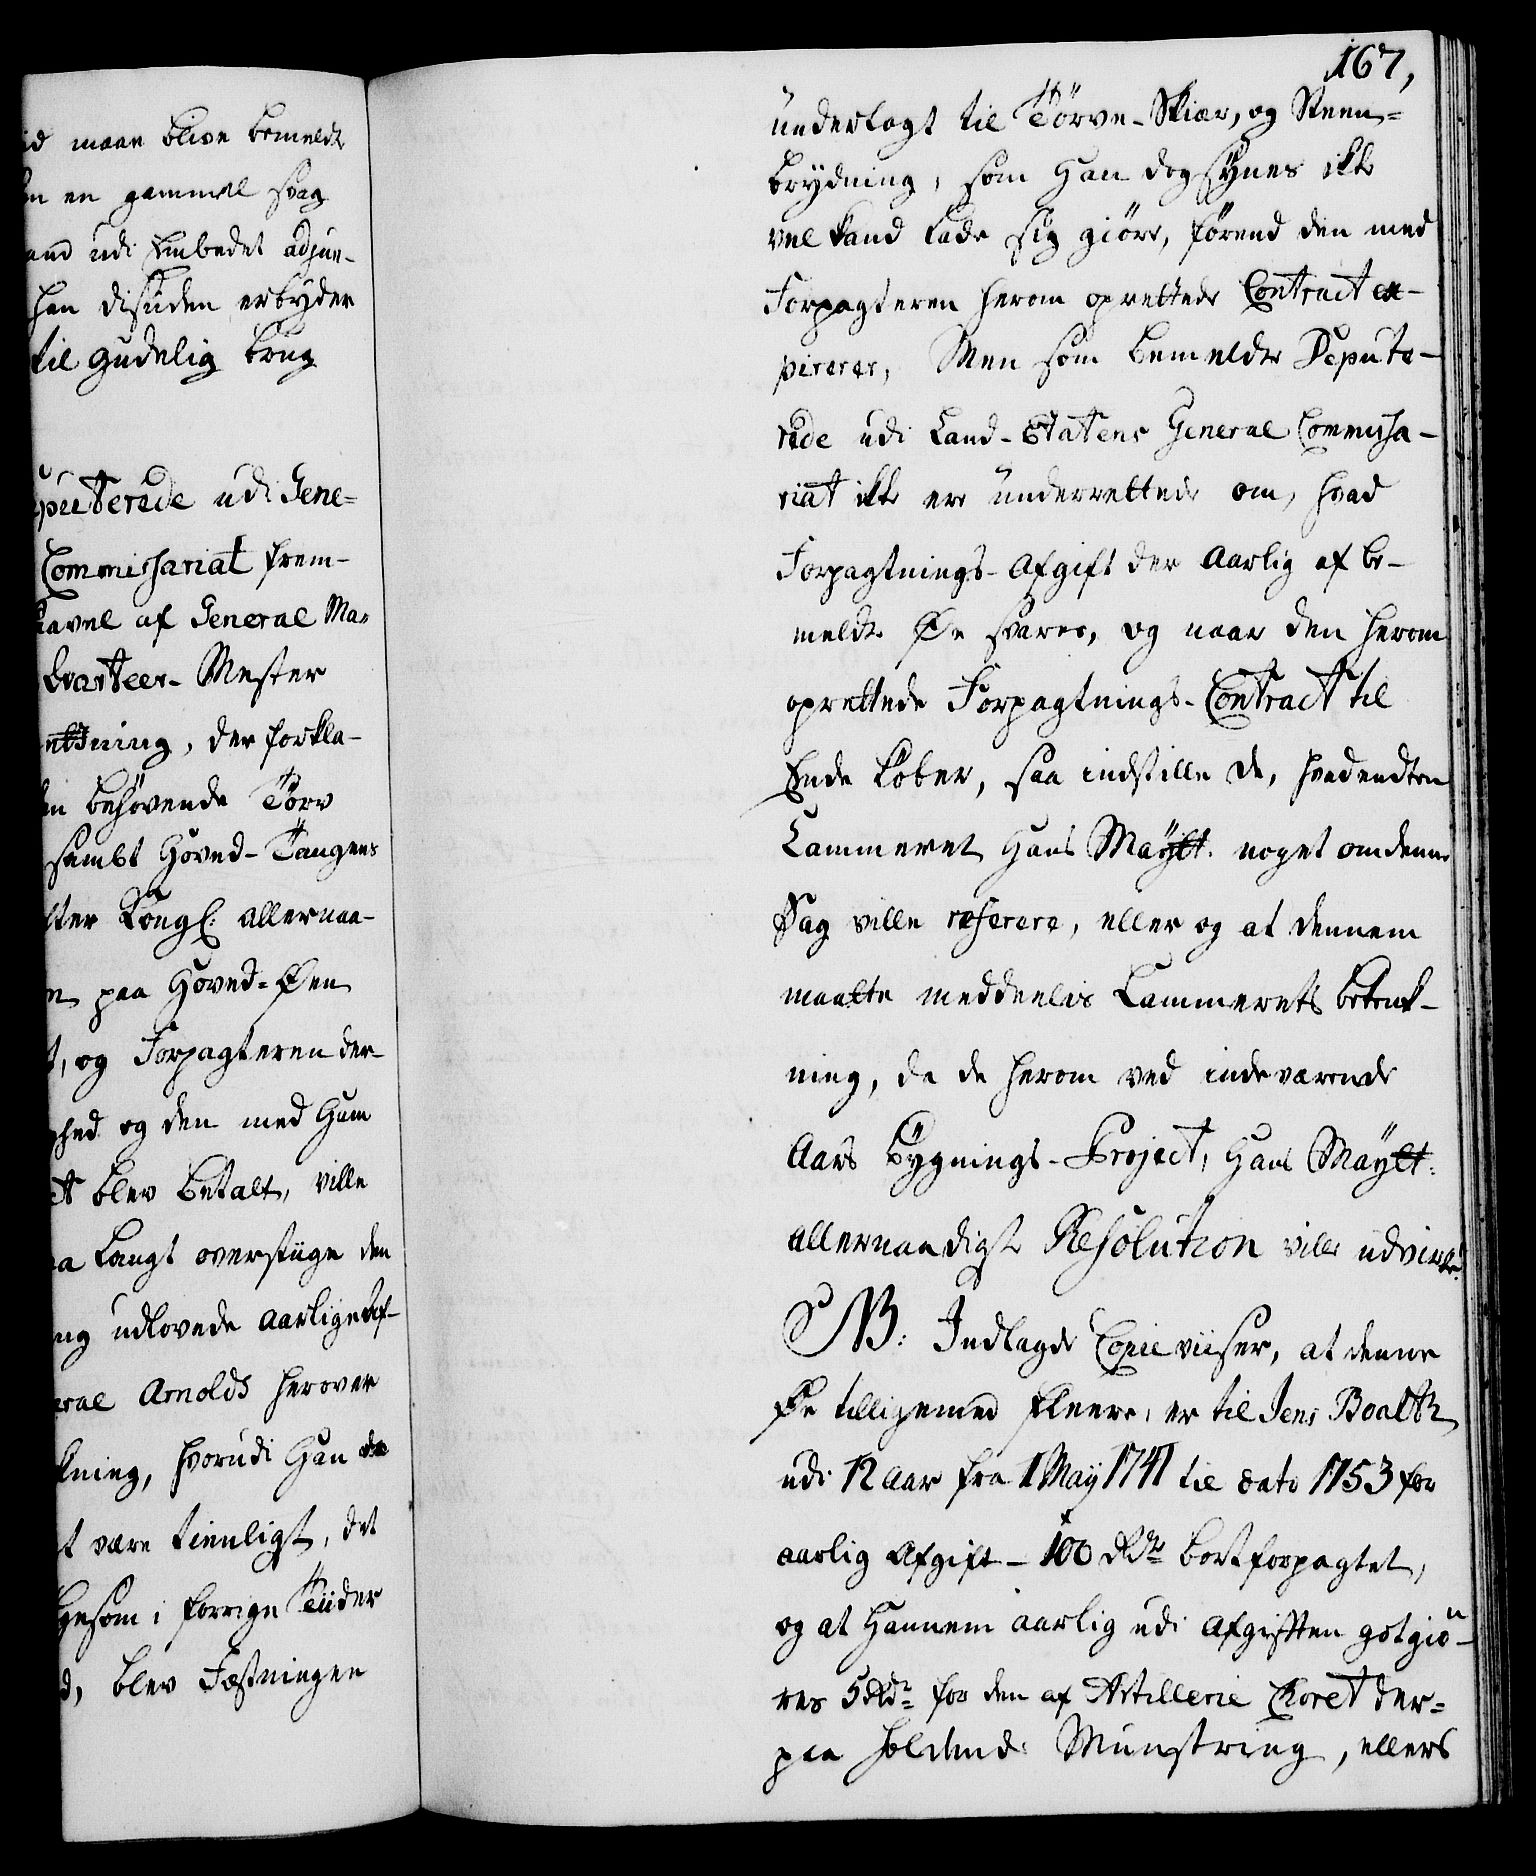 id maae blive bemeldte
en gammel svag
and udi Embedet adjun-
han desuden erbyder
til gudelig brug
puterede udi Gene-
Commissariat frem-
af General Ma-
Qvarteer-Mester
ning, der forkla-
behøvende Törv
sambt Hoved-Tangens
ter Kongl: allernaa-
paa Hoved-Øen
t, og Forpagteren der-
hed og den med Ham
et blev betalt, ville
a langt overstiige den
ng udlovede aarlige Af-
ral Arnolds herover
kning, hvorudi Han
t være tienligt, det
gesom i forrige Tiider
d, blev Fæstningen
167,
underlagt til Törve-Skiær, og Steen-
brydning, som Han dog synes ikke
vel kand lade sig giöre, förend den med
Forpagteren herom oprettede Contract ex-
pirerer, Men som bemeldte Depute-
rede udi Land-Etatens General Commissa-
riat ikke ere underrettede om, hvad
Forpagtnings-Afgift der Aarlig af be-
meldte Øe svares, og naar den herom
oprettede Forpagtnings-Contract til
Ende löber, saa indstille de, hvad endten
Cammeret Hans Maÿtt. noget om denne
Sag ville referere, eller og at dennem
maatte meddeeles Cammerets betænk-
ning, da de herom ved indeværende
Aars Bÿgnings-Project, Hans Maÿtt:
allernaadigste Resolution ville udvirke.
NB: Indlagde Copie viiser, at denne
Øe tilligemed fleere, er til Jens Boalth
udi 12 Aar fra 1 Maÿ 1741 til dato 1753 for
aarlig Afgift - 100 Rdr bortforpagtet,
og at Hannem aarlig udi Afgiften gotgiö-
res 5 Rdr for den af Artillerie Choret der-
paa holdende Munstring, ellers